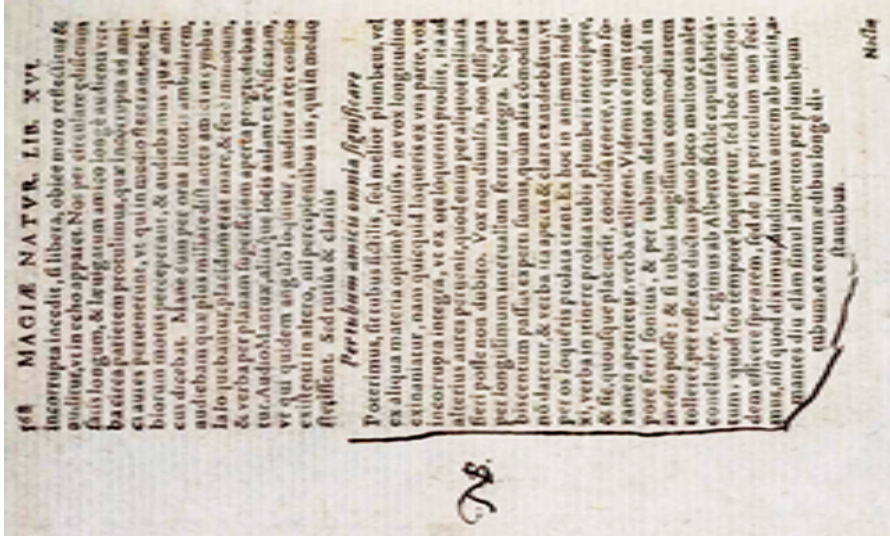 MAGIÆ NATVR. LIB. XVI.
incorrupta incedit, si libera, obice muro reflectitur &
auditur, vt in echo apparet. Nos per circulare ædificium
satis longum, & latiusculum amico longè audienti ver-
ba circa parietem protulimus, quæ
aures peruenerunt, vt qui in medio steterant, nec la-
biorum motus perceperant, & audiebamus quæ ami-
cus dicebat. Mane cum per oras littoris ambularem,
audiebam quæ plus milliare distantes amici in cymbu-
la loquebantur, placidum erat mare, & ferè immotum,
& verba per planam superficiem aperta progredieban-
tur. Audio Mantuæ, alijsque locis aulam extare ædificatam,
vt qui quidem angulo loquitur, auditur a rei conscio
existenti in altero, nil percipientibus iis, qui in medio
stetissent. Sed tutius & clarius
Per tubum amicis omnia significare
Poterimus, sit tubus fictilis, sed melior plumbeus, vel
ex aliqua materia optimè clausus, ne vox longitudine
exinaniatur, nam quicquid loqueris ex vna parte, vox
incorrupta integra, vt ex ore loquentis prodiit, ita ad
alterius aures peruenit, quod etiam per aliquot miliaria
fieri posse non dubito. Vox non diuulsa, non dissipata
per longissimum interuallum fertur integra. Nos per
bis centum passus experti sumus, quùm alia cōmoditas
nō daretur, & verba ita aperta, & clara exaudiebātur, vt
per os loquētis prolata erant. Ex hoc in animum indu-
xi, verba in itinere prolata tubis plumbeis intercipere,
& sic, quousque placuerit, conclusa tenere, vt quum fo-
ramen aperiretur, verba exilirent. Videmus enim tem-
pore ferri sonitus, & per tubum delatos concludi in
medio posse: & si tubus longissimus commoditatem
tolleret, per reflexos ductus paruo loco multos canales
concludere. Legimus ab Alberto fictile caput fabrica-
tum, quod suo tempore loqueretur, sed hoc artificio i-
dem efficere sperarem, sed de his periculum non feci-
mus, nisi quod diximus. Audiuimus autem ab amicis, a-
mantes diu clam simul allocutos per plumbeum
tubum ex eorum ædibus longè di-
stantibus.
NB.